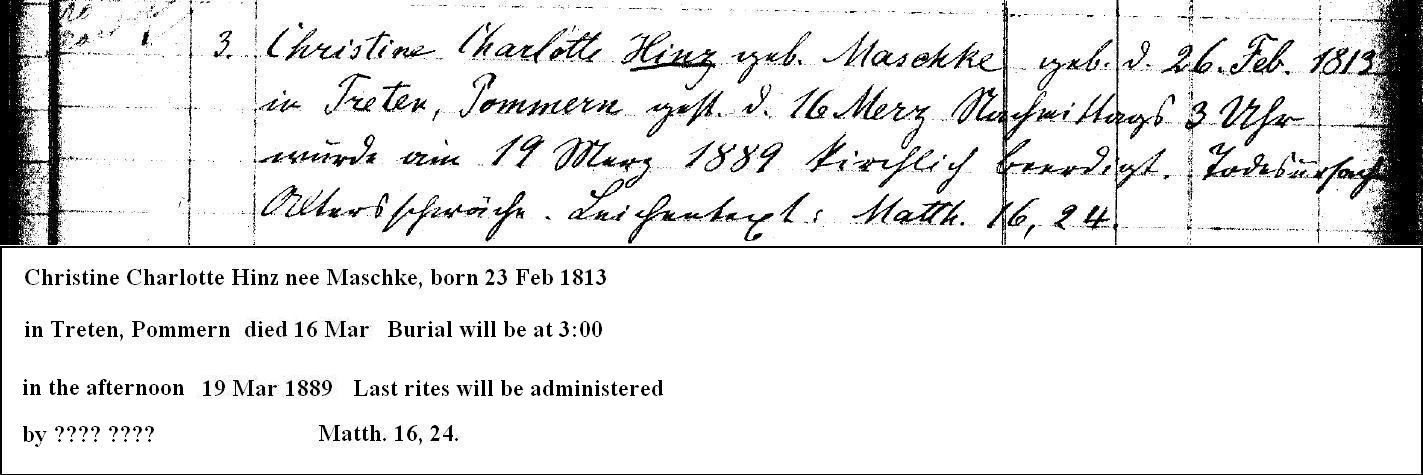 3. Christine Charlotte Hinz geb. Maschke geb. d. 26. Feb. 1813
in Treten, Pommern gest. d. 16 Merz Nachmittags 3 Uhr
wurde am 19 Merz 1889 kirchlich beerdigt. Todesursache
Altersschwäche. Leichentext: Matth. 16, 24.
Christine Charlotte Hinz nee Maschke, born 23 Feb 1813
in Treten, Pommern died 16 Mar Burial will be at 3:00
in the afternoon 19 Mar 1889 Last rites will be administered
by ???? ???? Matth. 16, 24.